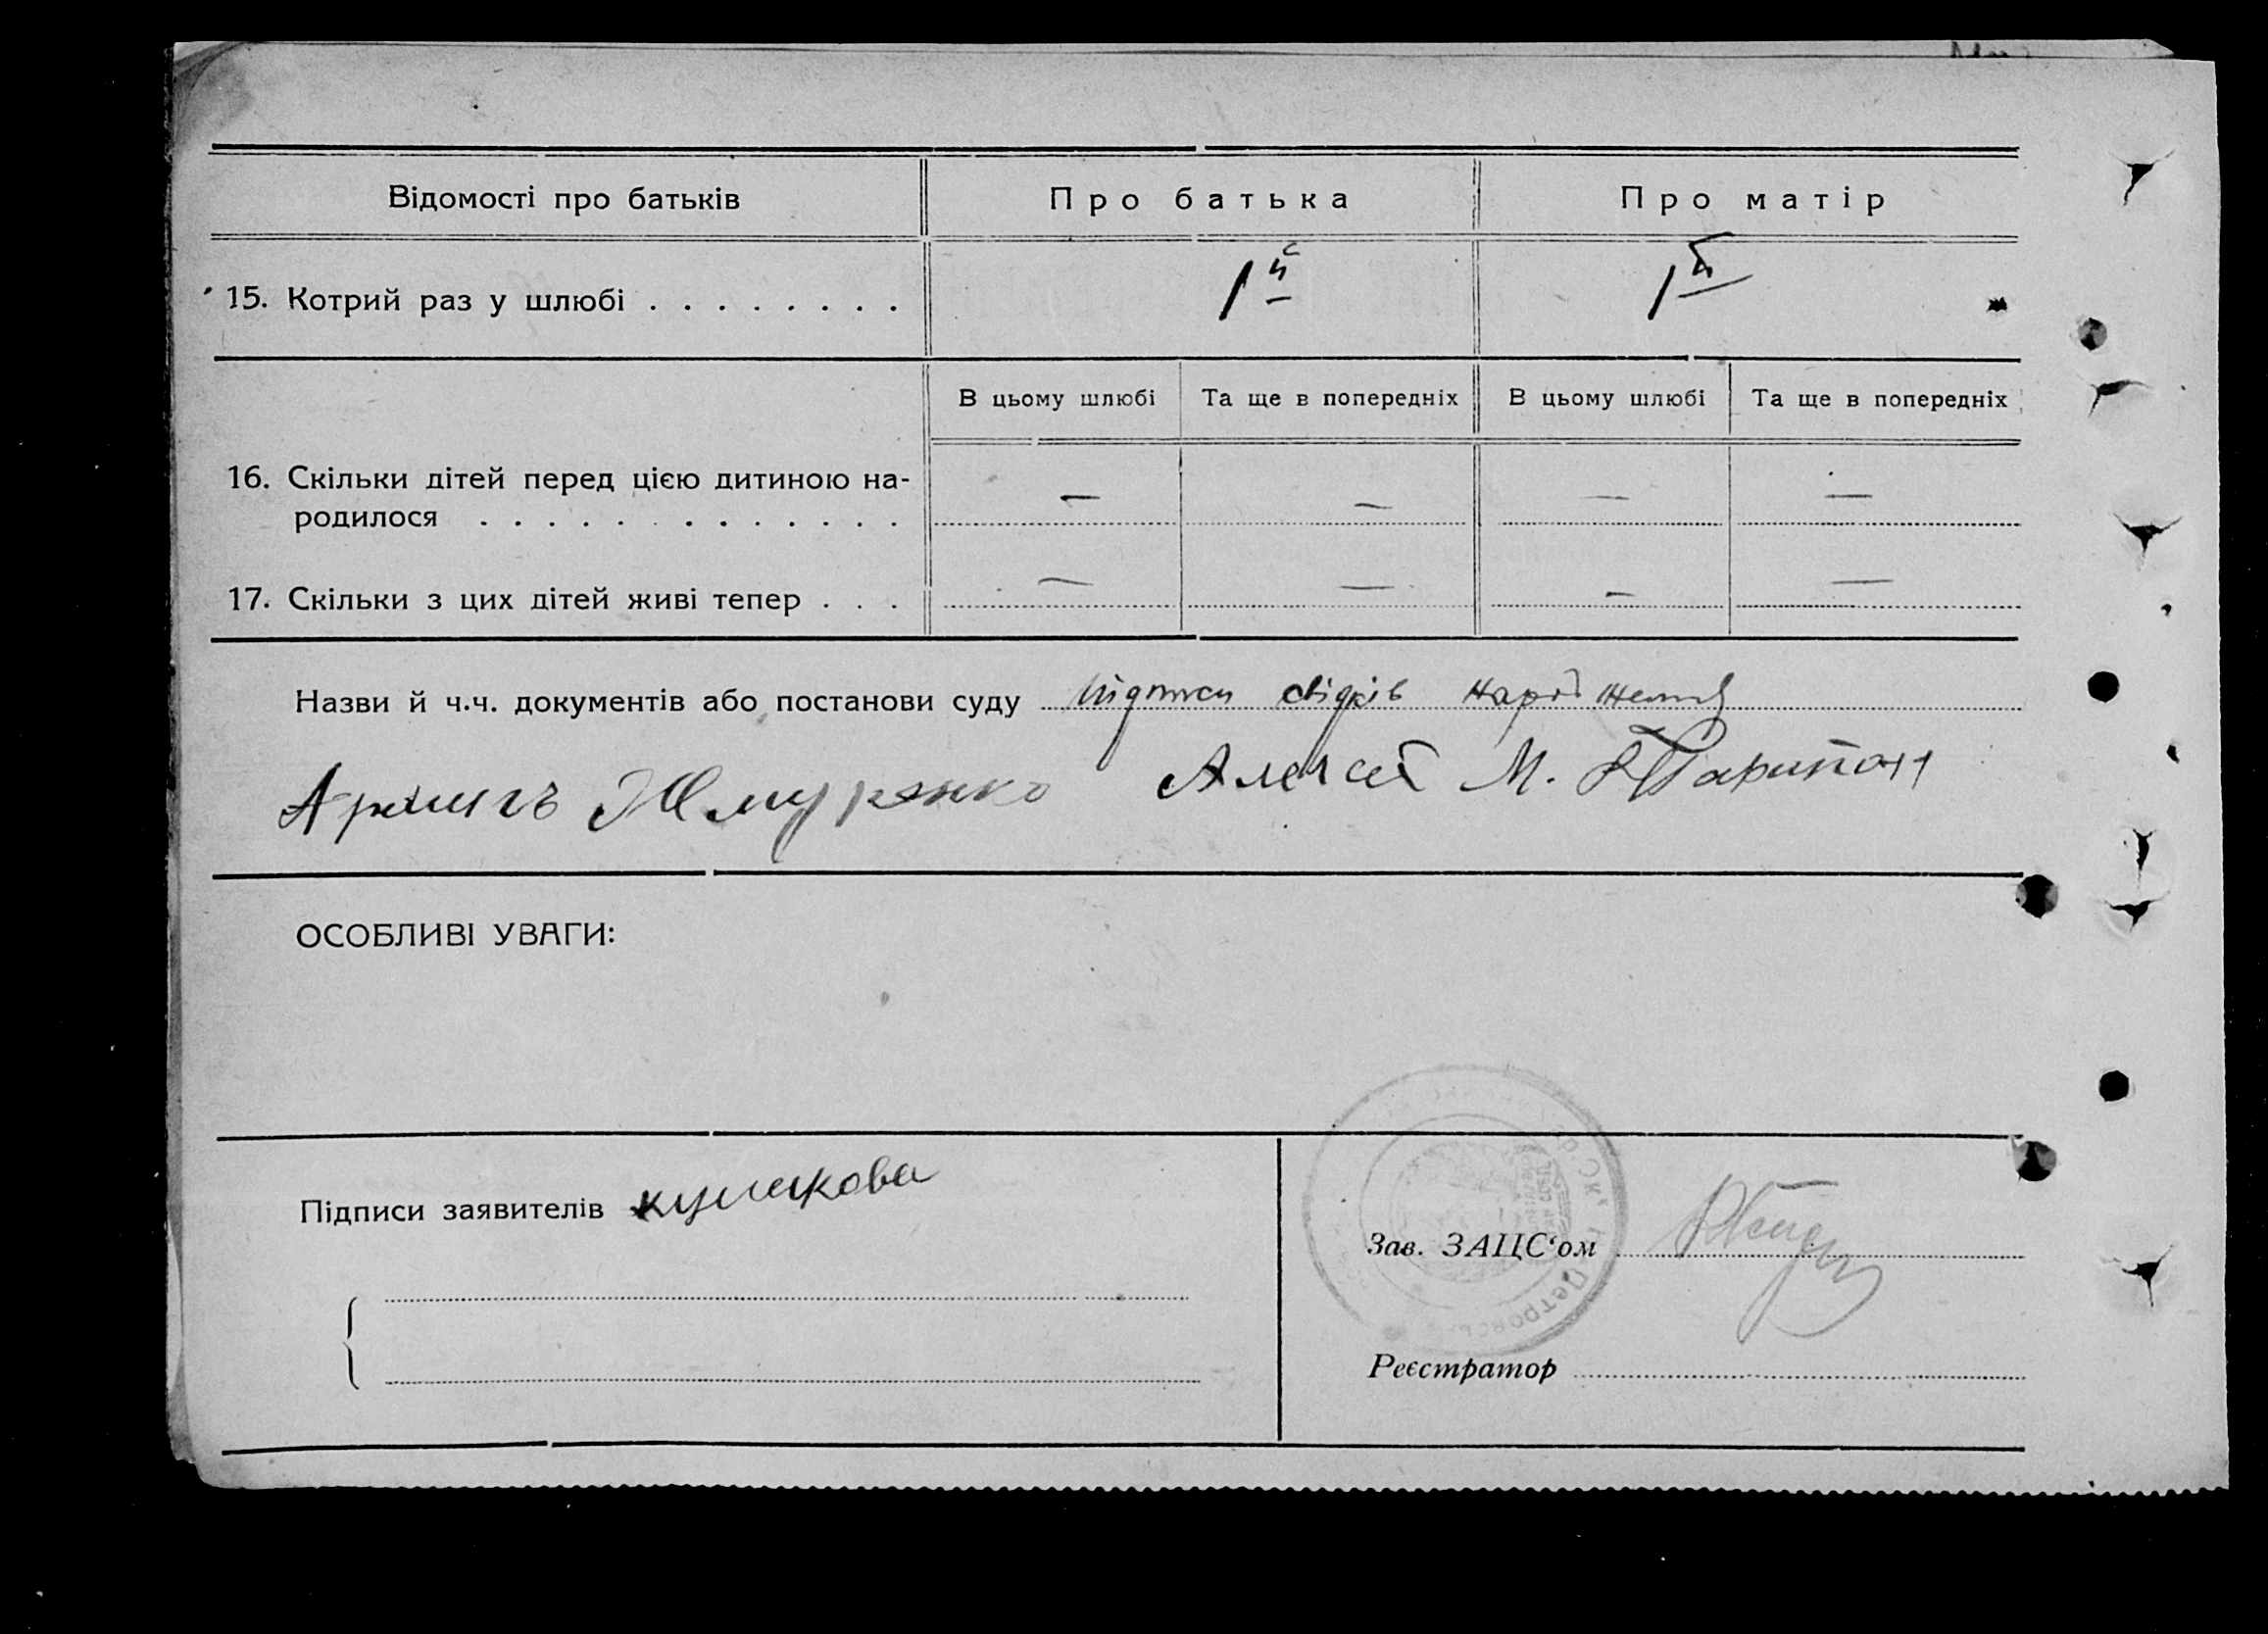 Відомості про батьків
Про батька
Про матір
15. Котрий раз у шлюбі . . . . . . . .
1й
1й
В цьому шлюбі
Та ще в попередніх
В цьому шлюбі
Та ще в попередніх
16. Скільки дітей перед цією дитиною на-
родилося . . . . . . . . . . . . .
— — — —
17. Скільки з цих дітей живі тепер . . .
— — — —
Назви й ч.ч. документів або постанови суду підписи свідків
Жмуренко Алексей М.
ОСОБЛИВІ УВАГИ:
Підписи заявителів
Зав. ЗАЦС‘ом
Реєстратор